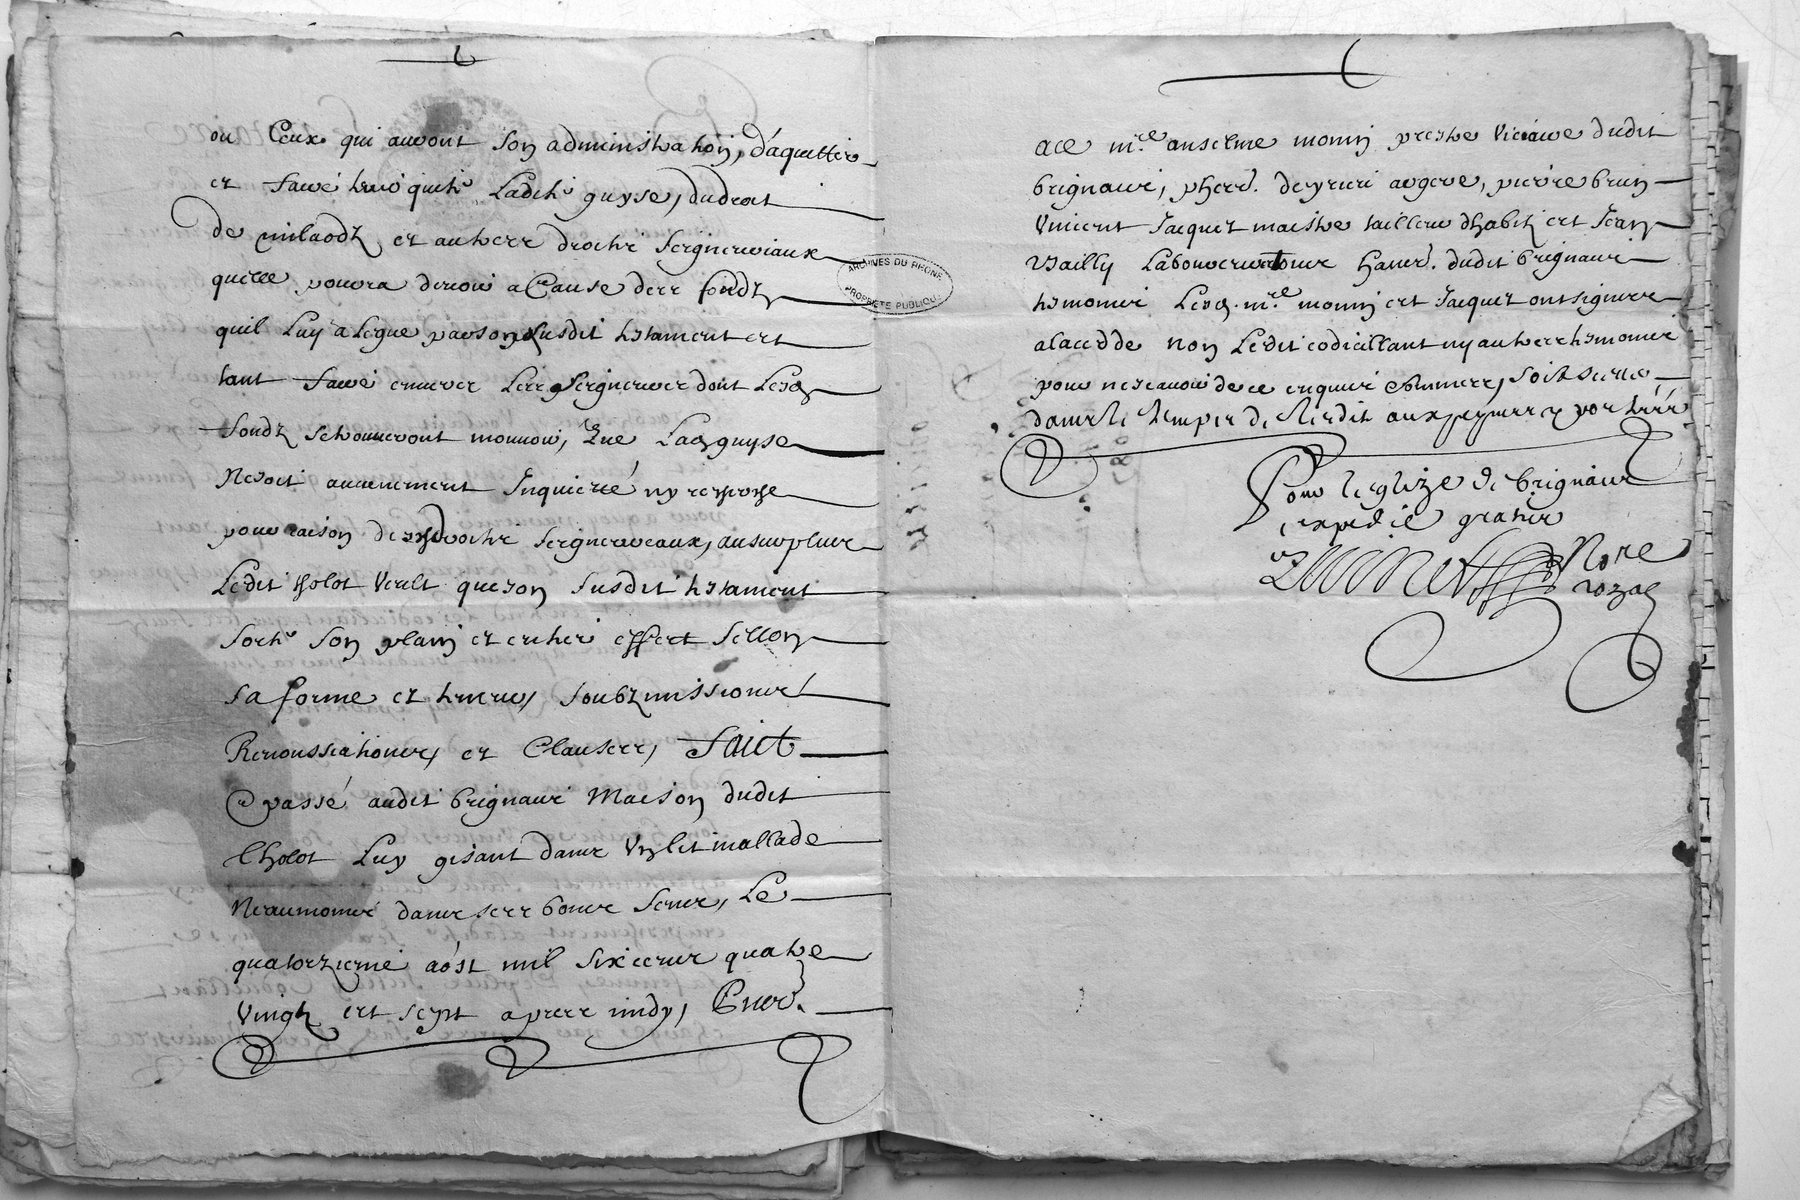 ou Ceux qui auront son administration, d'aquitter
et faire tenir quite Ladite eglyse, du droit
de milaodz et autres droits seigneuriaux
quelle pourra devoir a Cause des fondz
quil Luy a Legué par son susdit testament et
tant faire envers Les seigneurs dont Lesd
fondz se trouveront mouvoir, Que Lad eglyse
Ne soit aucunement Inquietté ny
pour raison desd droits seigneureaux, au surplus
Ledit Cholot Veult que son susdit testament
sorte son plain et entier effect sellon
sa forme et teneur, soubzmissions
Renonssiations, et Clauses, Faict
et passé audit brignais Maison dudit
Cholot Luy gisant dans Un lit mallade
Neaumoins dans ses bons sens, Le
quatorzieme aost mil six cens quatre
Vingtz et sept apres midy, Pnce.
ARCHIVES DU RHONE
PROPRIETE PUBLIQUE
a ce mre anselme monin prestre Vicaire dudit
brignais, pierre brun
Vincent Jacquet maistre tailleur dhabitz et Jean
Vailly Laboureur tous dudit brignais
tesmoins Lesd. mre monin et Jacquet ont signez
a la cedde non Ledit codicillant ny autres tesmoins
pour ne scavoir de ce enquis et sommez, soit scellé
dans le temps de l'esdit aux peynes y portées
Pour leglize de brignais
expedié gratis
Nore
royal